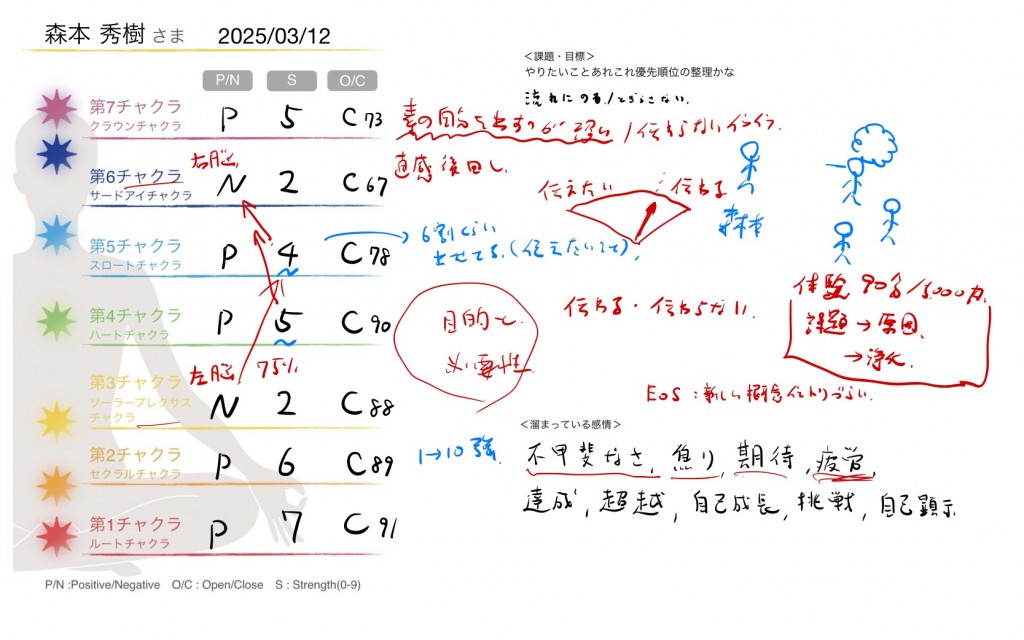 森本 秀樹 さま 2025/03/12
P/N S O/C
第7チャクラ
クラウンチャクラ
P 5 C73
右脳
第6チャクラ
サードアイチャクラ
N 2 C67
第5チャクラ
スロートチャクラ
P 4 C78
第4チャクラ
ハートチャクラ
P 5 C90
左脳 75%
第3チャクラ
ソーラープレクサス
チャクラ
N 2 C88
第2チャクラ
セクラルチャクラ
P 6 C89
第1チャクラ
ルートチャクラ
P 7 C91
P/N :Positive/Negative O/C : Open/Close S : Strength(0-9)
＜課題・目標＞
やりたいことあれこれ優先順位の整理かな
流れにのる/とぎらさない.
素の自分を出すのが
/伝わらないイライラ.
直感後回し.
伝えたい 伝わる
森本
6割くらい
出せてる.(伝えたいこと),
目的と
必要性
伝わる・伝わらない.
体験 90分/
課題→原因
→浄化.
EOS:新しい概念
1→10 強.
＜溜まっている感情＞
不甲斐なさ, 焦り, 期待, 疲労,
達成, 超越, 自己成長, 挑戦, 自己顕示